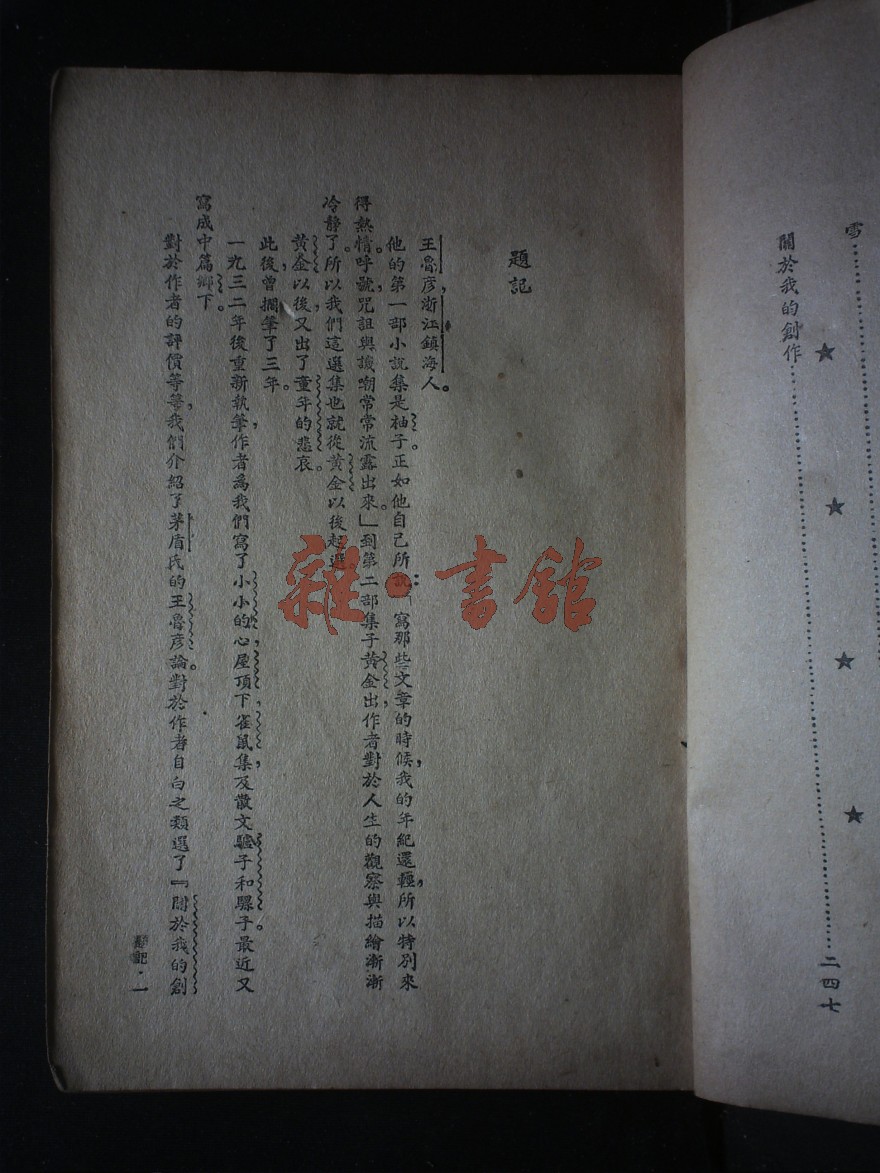 雪……………………………………
★ ★ ★ ★
關於我的創作……………………………………二四七
題記
王魯彥，浙江鎮海人。
他的第一部小說集是柚子。正如他自己所說：「寫那些文章的時候，我的年紀還輕，所以特別來
得熱情。呼號，咒詛與譏嘲常常流露出來。」到第二部集子黃金出，作者對於人生的觀察與描繪漸漸
冷靜了。所以我們這選集也就從黃金以後起選
黃金以後，又出了童年的悲哀。
此後，曾擱筆了三年。
一九三二年後重新執筆，作者爲我們寫了小小的心，屋頂下，雀鼠集，及散文驢子和騾子。最近又
寫成中篇鄉下。
對於作者的評價等等，我們介紹了茅盾氏的王魯彥論。對於作者自白之類選了『關於我的創
題記·一
雜·書館